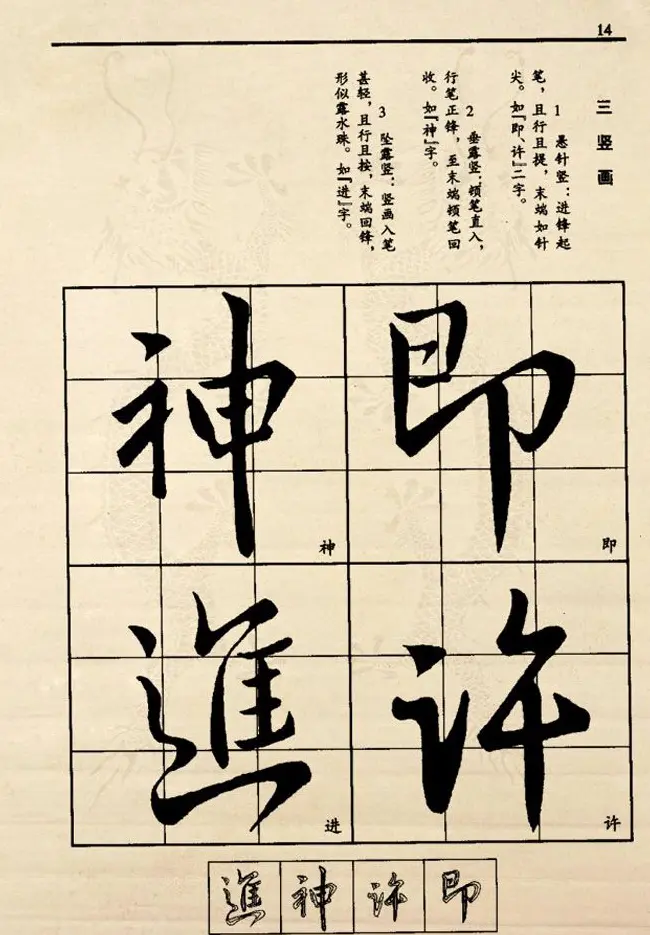 14
三 竖画
1 悬针竖：进锋起
笔，且行且提，末端如针
尖。如『即、许』二字。
2 垂露竖：顿笔直入，
行笔正锋，至末端顿笔回
收。如『神』字。
3 坠露竖：竖画入笔
甚轻，且行且按，末端回锋，
形似露水珠。如『进』字。
即
即
许
许
神
神
進
进
即
许
神
進